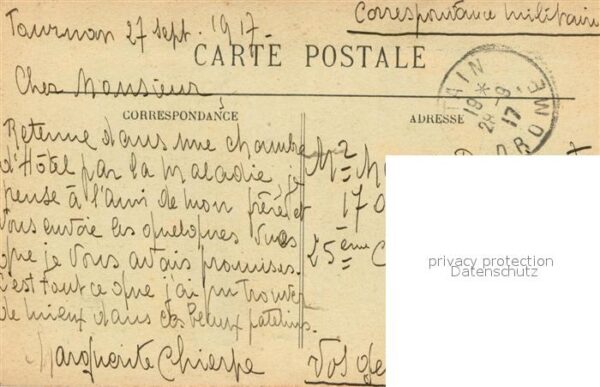 Correspondance militaire
Tournan 27 sept. 1917.
CARTE POSTALE
Cher Monsieur
CORRESPONDANCE
ADRESSE
Retenue dans une chambre
d'Hôtel par la maladie je
pense à l'ami de mon frère et
vous envoie les quelques vues
que je vous avais promises.
C'est tout ce que j'ai pu trouver
de mieux dans ces beaux patelins.
Marguerite
TAIN
19 *
28 -9
17
DROME
17
25ème C
Vosge
privacy protection
Datenschutz